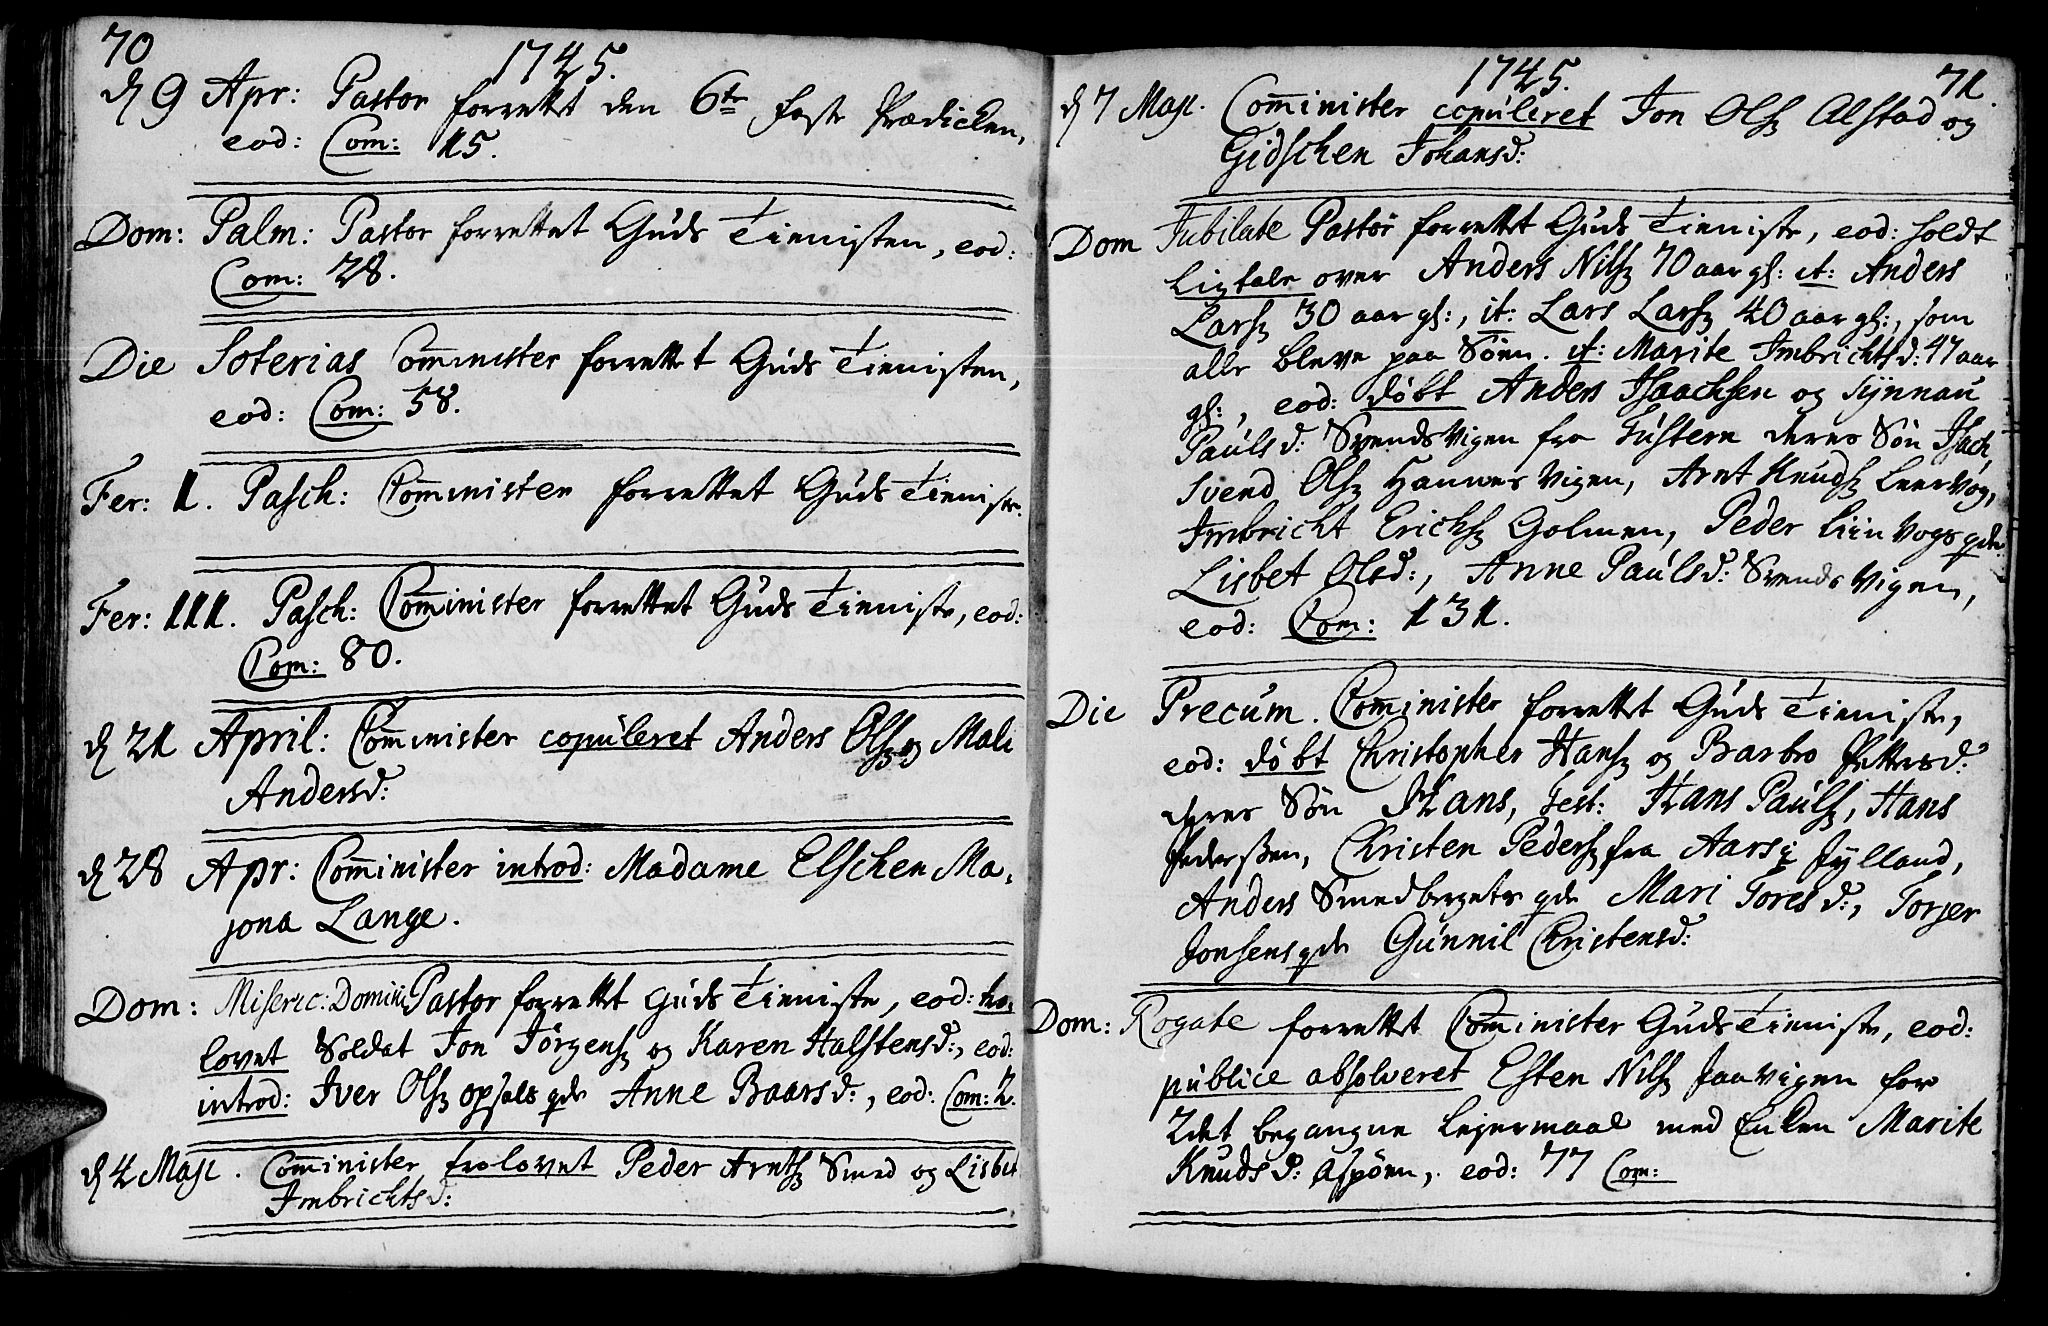 70
1745.
d 9 Apr: Pastor forrettet den 6te faste Prædicken,
eod: Com: 15.
Dom: Palm: Pastor forrettet Guds Tienisten, eod:
Com: 28.
Die Soterias Comminister forrettet Guds Tienisten,
eod: Com: 58.
Fer: II. Pasch: Comminister forrettet Guds Tieniste.
Fer: III. Pasch: Comminister forrettet Guds Tieniste, eod:
Com: 80.
d 21 April: Comminister copuleret Anders Ols: og Mali
Andersd:
d 28 Apr: Comminister introd: Madame Elschen Ma-
jona Lange.
Dom: Miseric: Domini Pastor forrettet Guds Tieniste, eod: tro-
lovet Soldat Jon Jörgens: og Karen Halstensd:, eod:
introd: Iver Ols: opsals qde Anne Baarsd:, eod: Com: 2.
d 4 Maji. Comminister trolovet Peder Arnts: Smed og Lisbet
Imbrichtsd:
1745.
71.
d 7 Maji. Comminister copuleret Jon Ols: Alstad og
Gidschen Johansd:
Dom Jubilate Pastor forrettet Guds Tieniste, eod: holdt
Ligtale over Anders Nils: 70 aar gl: it: Anders
Lars: 30 aar gl:, it: Lars Lars: 40 aar gl:, som
alle bleve paa Søen. it: Marite Imbrichtsd: 47 aar
gl:, eod: døbt Anders Isaachsen og Synnau
Paulsd: Svends Vigen fra Tustern deres Søn Isach,
Svend Ols: Hannes Vigen, Arnt Knuds: Leervog,
Imbricht Erichs: Golmen, Peder Liinvogs qde
Lisbet Olsd:, Anne Paulsd: Svends Vigen,
eod: Com: 131.
Die Precum. Comminister forrettet Guds Tieniste,
eod: døbt Christopher Hans: og Barbro Pettersd:
deres Søn Hans, Test: Hans Pauls:, Hans
Pederssen, Christen Peders: fra Aars i Jylland,
Anders Smedbergets qde Mari Toresd:, Torjer
Jonsens qde Gunnil Christensd:
Dom: Rogate forrettet Comminister Guds Tieniste, eod:
publice absolveret Esten Nils: Jaavigen for
2det begangne Lejermaal med Enken Marite
Knudsd: Aspøen, eod: 77 Com: